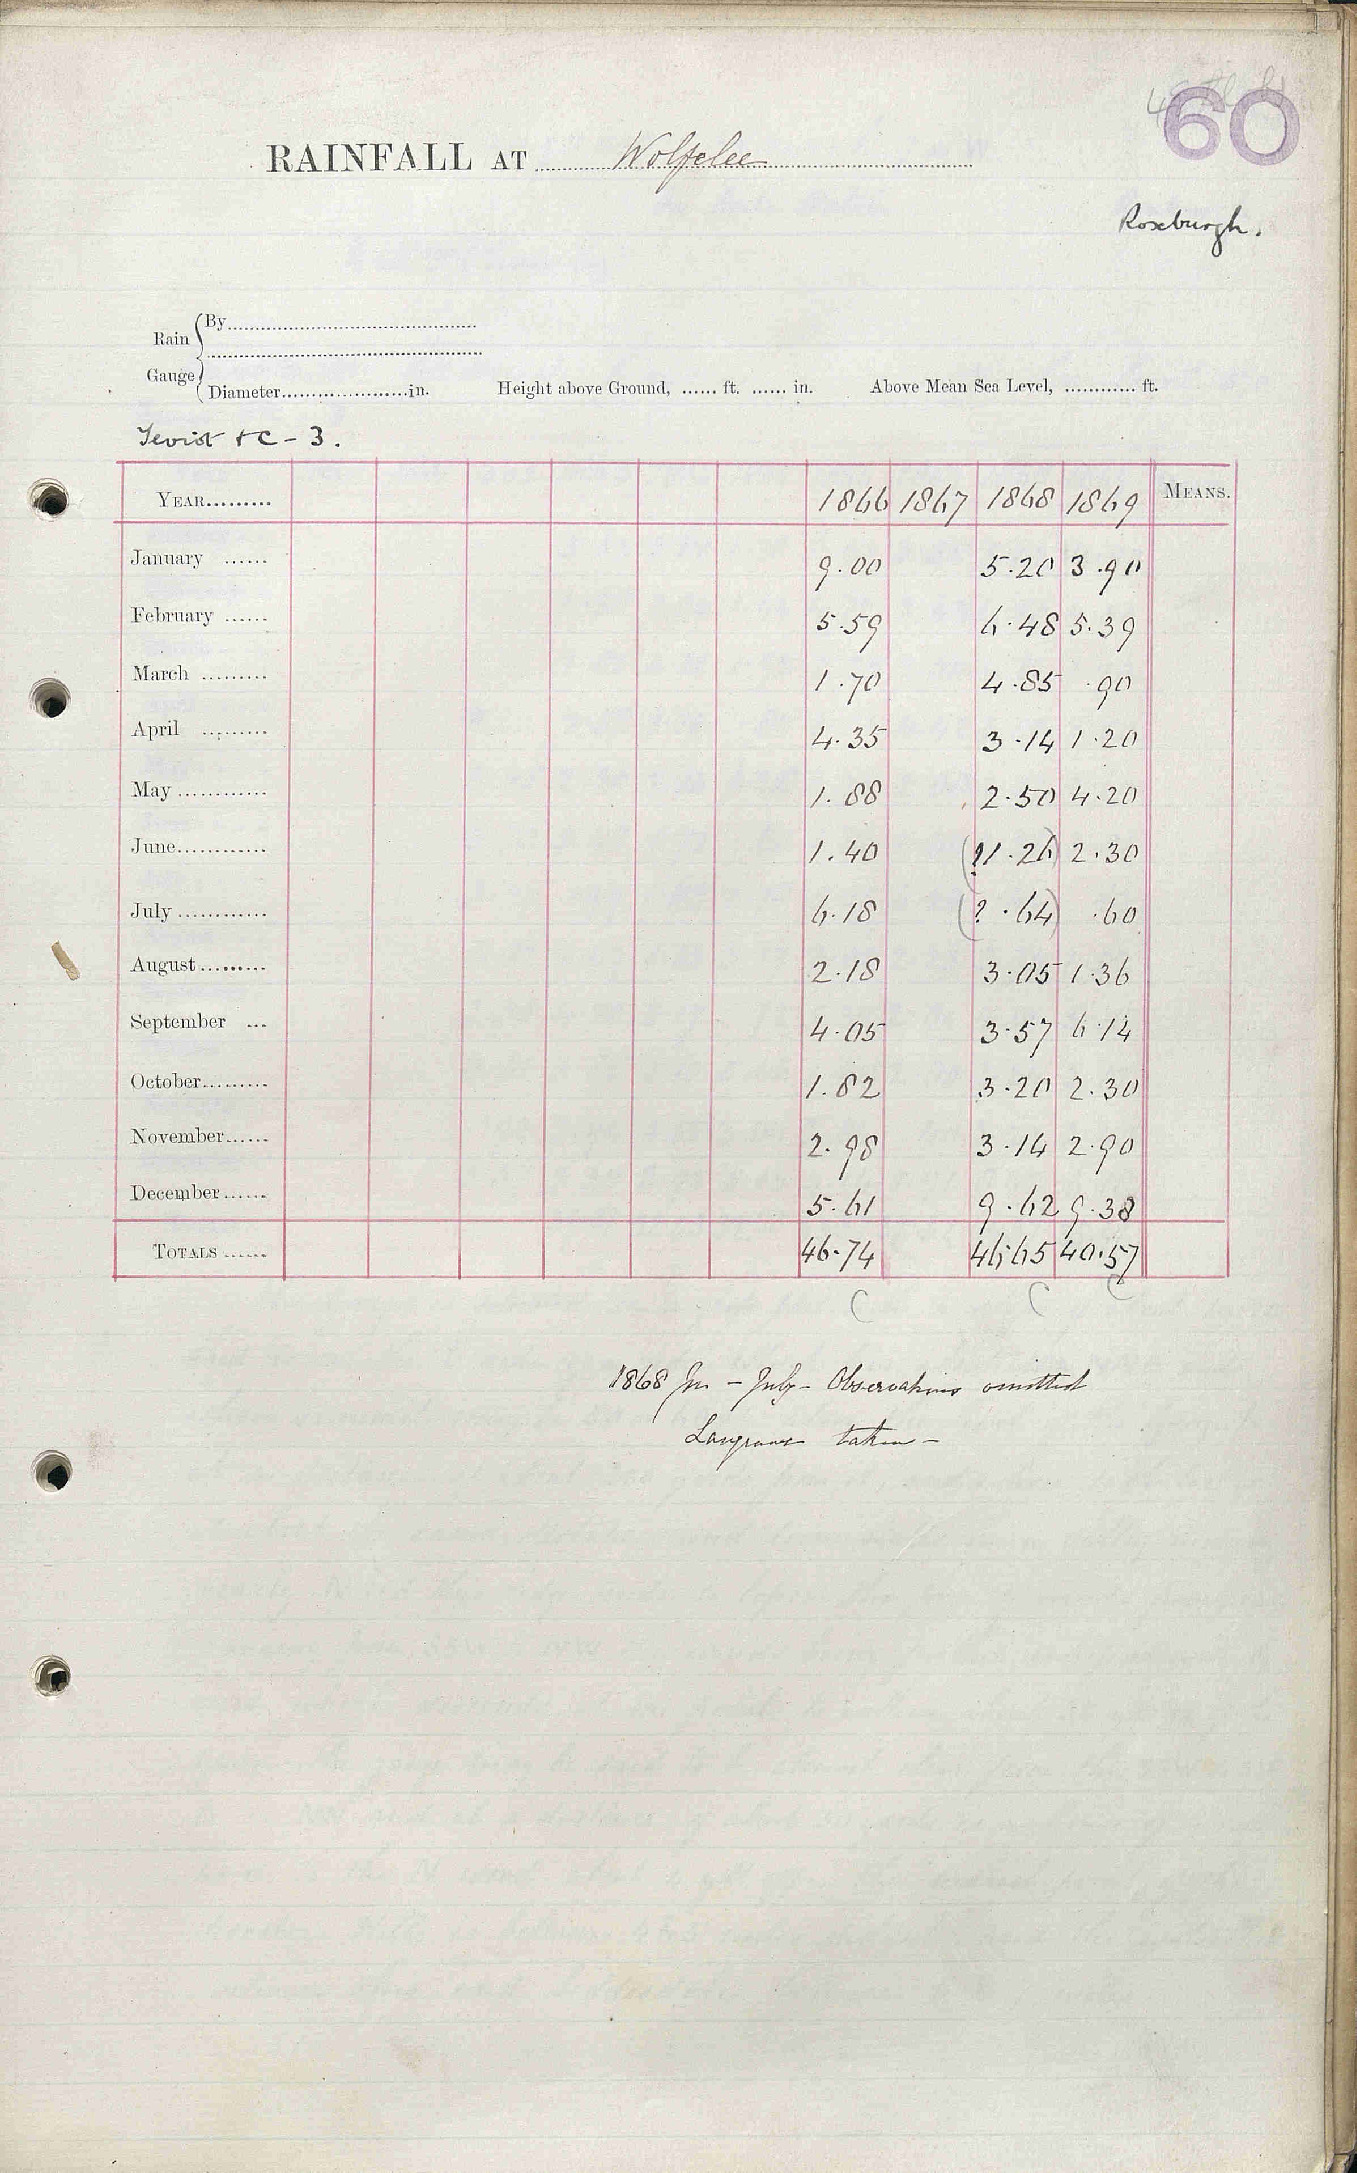 60
RAINFALL AT Wolfelee
Roxburgh.
Rain Gauge { By..............................
Diameter.....................in. Height above Ground, ...... ft. ...... in. Above Mean Sea Level, ............ ft.
Teviot &c - 3.
YEAR......... 1866 1867 1868 1869 MEANS.
January ...... 9.00 5.20 3.90
February ...... 5.59 6.48 5.39
March ......... 1.70 4.85 .90
April ......... 4.35 3.14 1.20
May ............ 1.88 2.50 4.20
June............ 1.40 (?1.26) 2.30
July ............ 6.18 (? .64) .60
August......... 2.18 3.05 1.36
September ... 4.05 3.57 6.14
October......... 1.82 3.20 2.30
November...... 2.98 3.14 2.90
December...... 5.61 9.62 9.38
TOTALS ...... 46.74 46.65 40.57
1868 Jn - July - Observations omitted
Langraw taken -